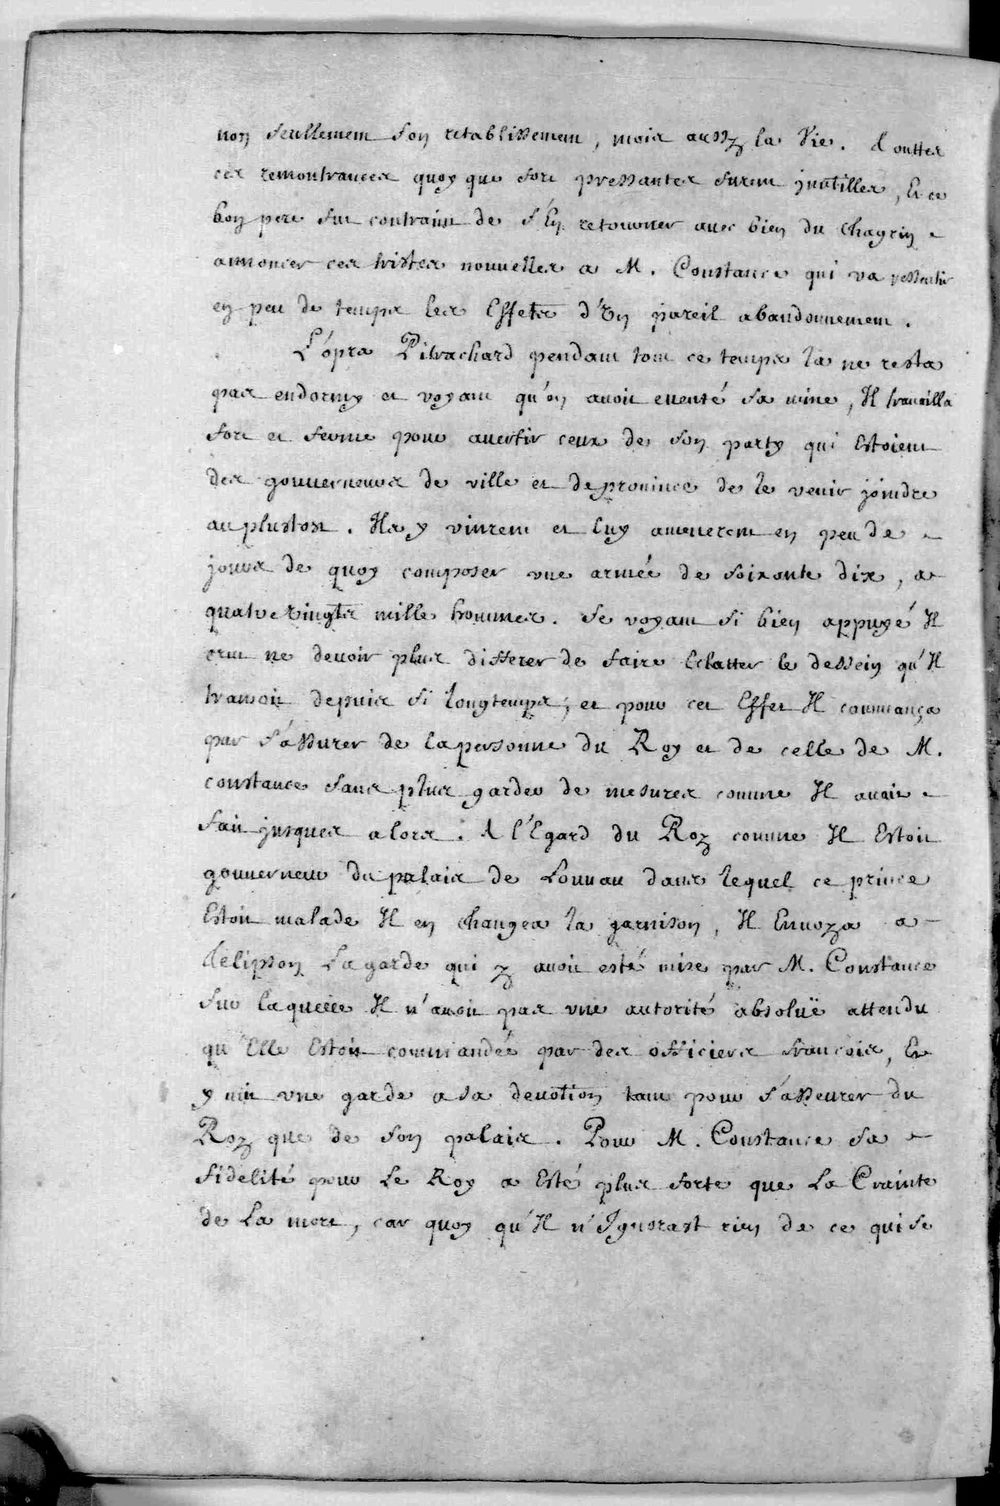 non seullement son retablissement, mais aussy la Vie. touttes
ces remontrances quoy que fort pressantes furent jnutilles, Et ce
bon pere fut contraint de s'En retourner avec bien du chagrin
annoncer ces tristes nouvelles a M. Constance qui va ressentir
en peu de temps les Effets d'Vn pareil abandonnement.
L'opra Pitrachard pendant tout ce temps la ne resta
pas endormy et voyant qu'on auoit euenté sa mine, Il trauailla
fort et ferme pour auertir ceux de son party qui Estoient
des gouuerneurs de ville et de prouince de le venir joindre
au plustost. Ils y vinrent et luy amenerent en peu de
jours de quoy composer vne armée de soixante dix, a
quatre vingts mille hommes. se voyant si bien appuyé Il
crut ne deuoir plus differer de faire Eclatter le dessein qu'Il
tramoit depuis si longtemps; et pour cet Effet Il commança
par s'assurer de la personne du Roy et de celle de M.
constance sans plus garder de mesures comme Il auoit
fait jusques alors. A l'Egard du Roy comme Il Estoit
gouuerneur du palais de Louuau dans lequel ce prince
Estoit malade Il en changea la garnison, Il Enuoya a
Telipson la garde qui y auoit esté mise par M. Constance
sur laquelle Il n'auoit pas vne autorité absoluë attendu
qu'Elle Estoit commandée par des officiers francois, Et
y mit vne garde a sa deuotion tant pour s'asseurer du
Roy que de son palais. Pour M. Constance sa
fidelité pour Le Roy a Esté plus forte que La Crainte
de La mort, car quoy qu'Il n'Ignorast rien de ce qui se